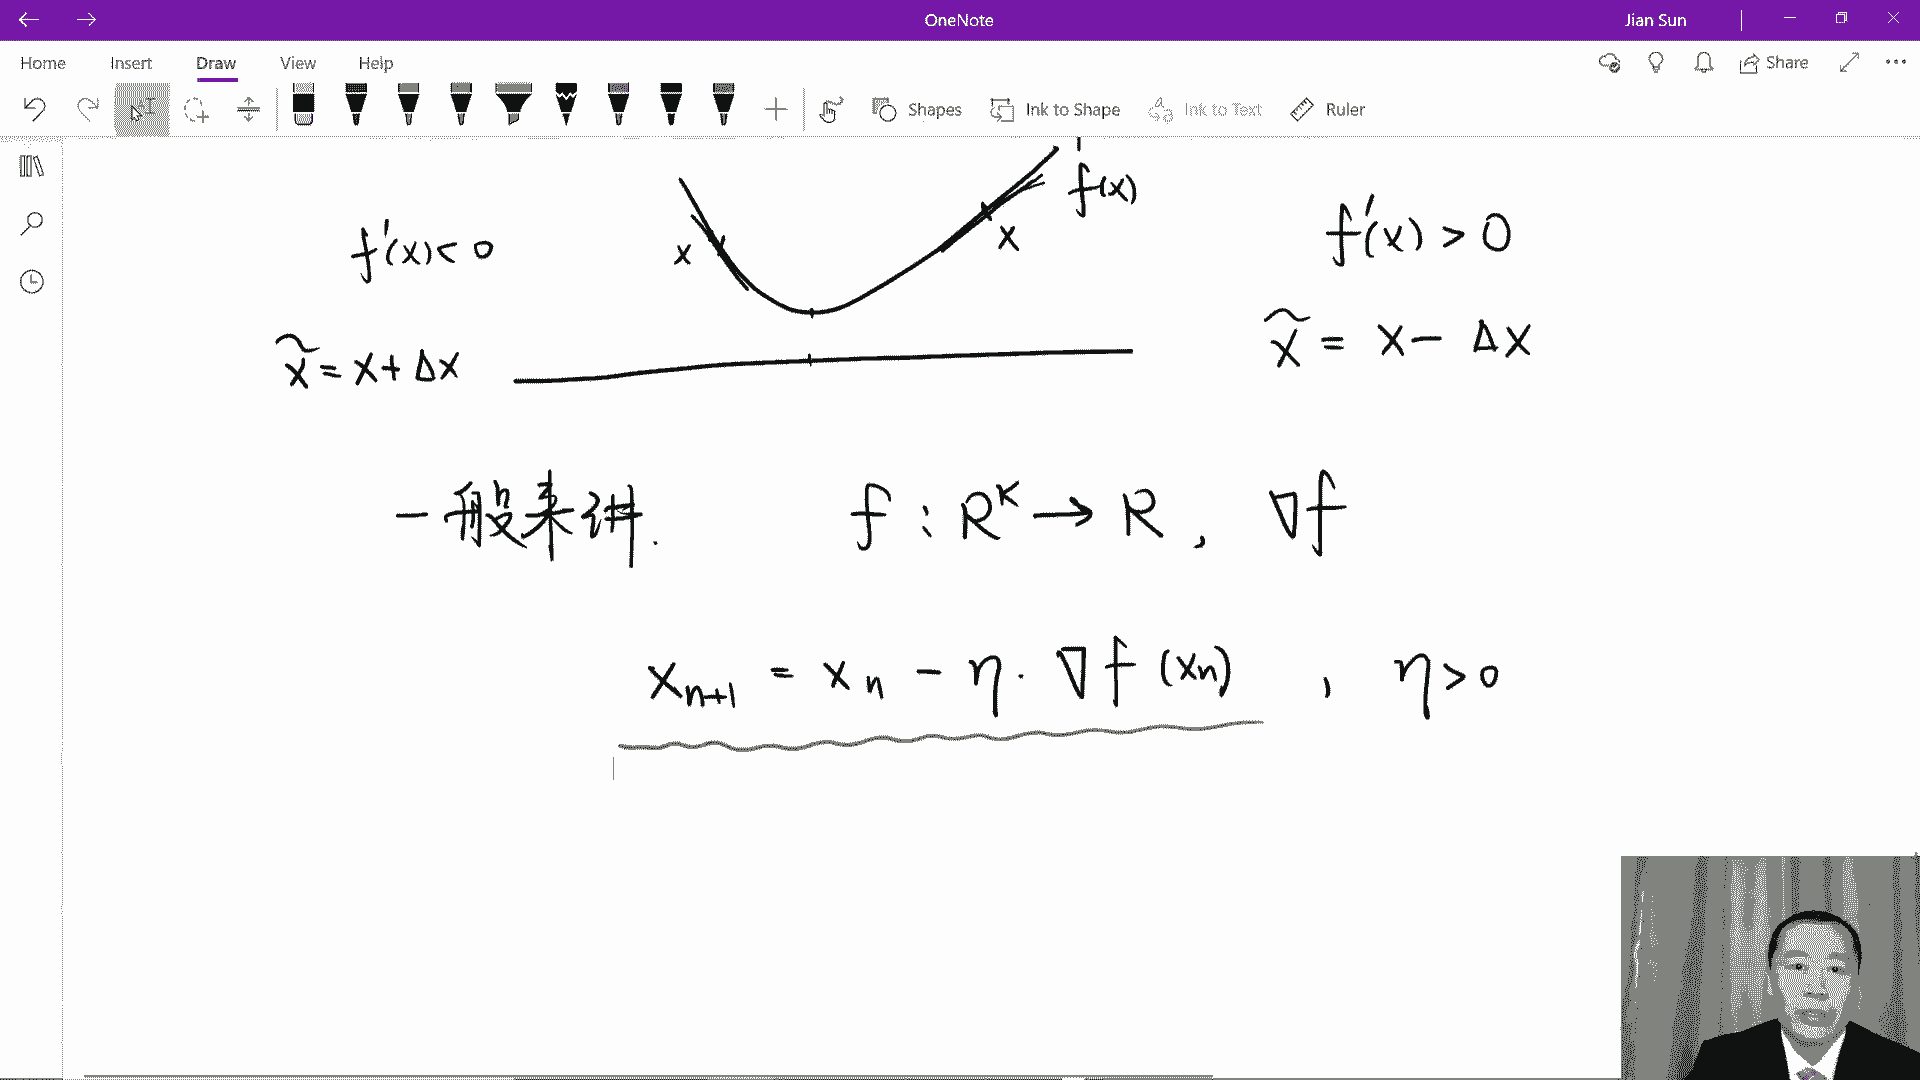 OneNote
Jian Sun
Home Insert Draw View Help
Share
Shapes Ink to Shape Ink to Text Ruler
f(x)
f'(x) < 0
x
x
f'(x) > 0
x̃ = x + Δx
x̃ = x - Δx
一般来讲.
f : R^K → R , ∇f
x_{n+1} = x_n - η · ∇f (x_n) , η > 0